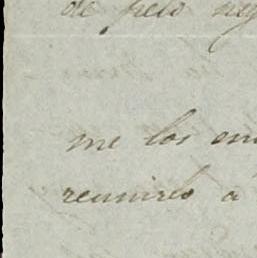 de pelo neg
me los en
reunirlo a